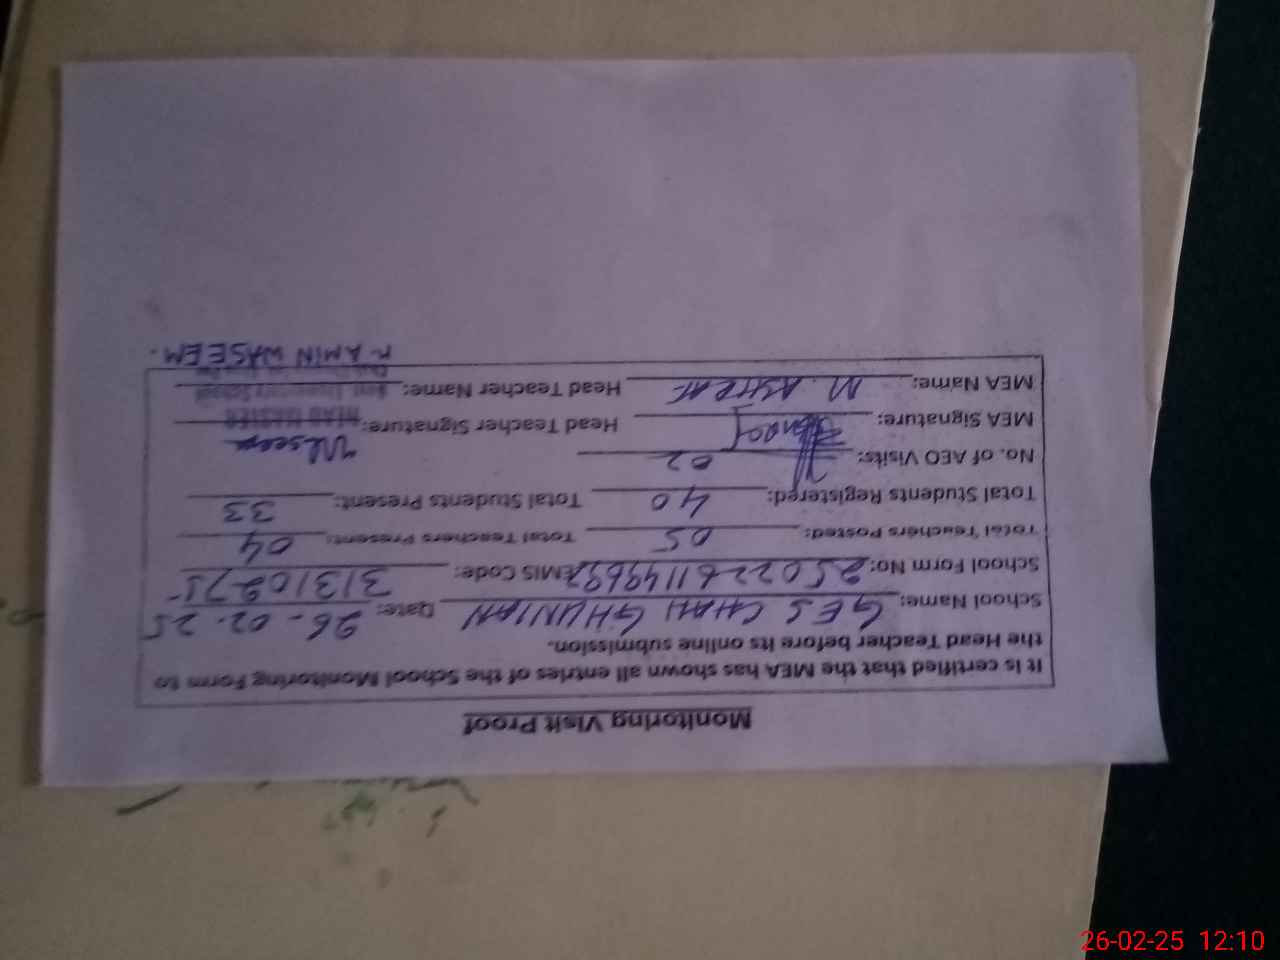 Monitoring Visit Proof
It is certified that the MEA has shown all entries of the School Monitoring Form to
the Head Teacher before its online submission.
School Name: GES CHAH GHUNIAN Date: 26-02-25
School Form No: EMIS Code: 31310275
Total Teachers Posted: 05 Total Teachers Present: 04
Total Students Registered: 40 Total Students Present: 33
No. of AEO Visits: 02
MEA Signature: Head Teacher Signature: Waseem
HEAD MASTER
MEA Name: M. ASHRAF Head Teacher Name:
M. AMIN WASEEM.
26-02-25 12:10